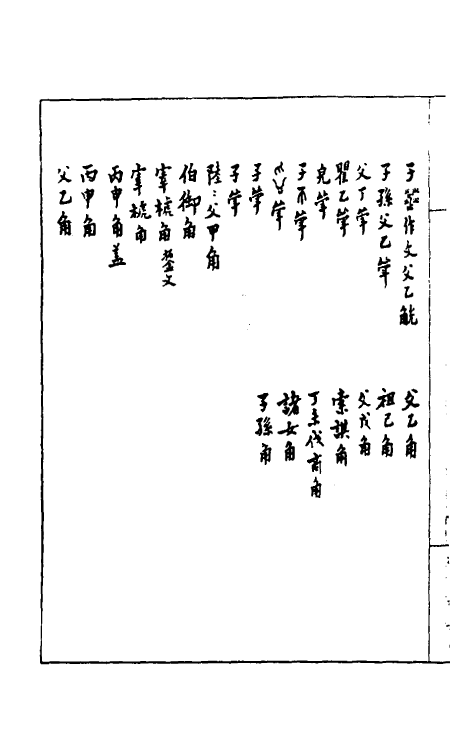 子作文父乙觥
子孫父乙斝
父丁斝
瞿乙斝
斝
子不斝
斝
子斝
子斝
陸父甲角
伯御角
宰椃角鋬文
宰椃角
丙申角蓋
丙申角
父乙角
父乙角
祖己角
父戊角
索諆角
丁未伐商角
諸女角
子孫角